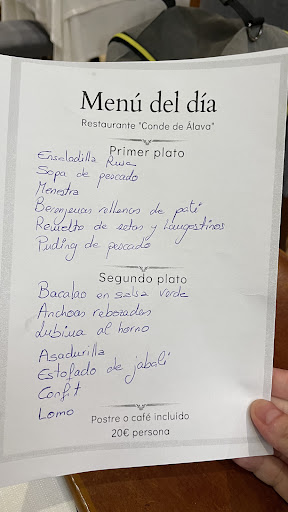 Menú del día
Restaurante "Conde de Álava"
Primer plato
Ensaladilla Rusa
Sopa de pescado
Menestra
Berenjenas rellenas de pati
Revuelto de setas y Langostinos
Puding de pescado
Segundo plato
Bacalao en salsa verde
Anchoas rebozadas
Lubina al horno
Asadurilla
Estofado de jabalí
Confit
Lomo
Postre o café incluido
20€ persona